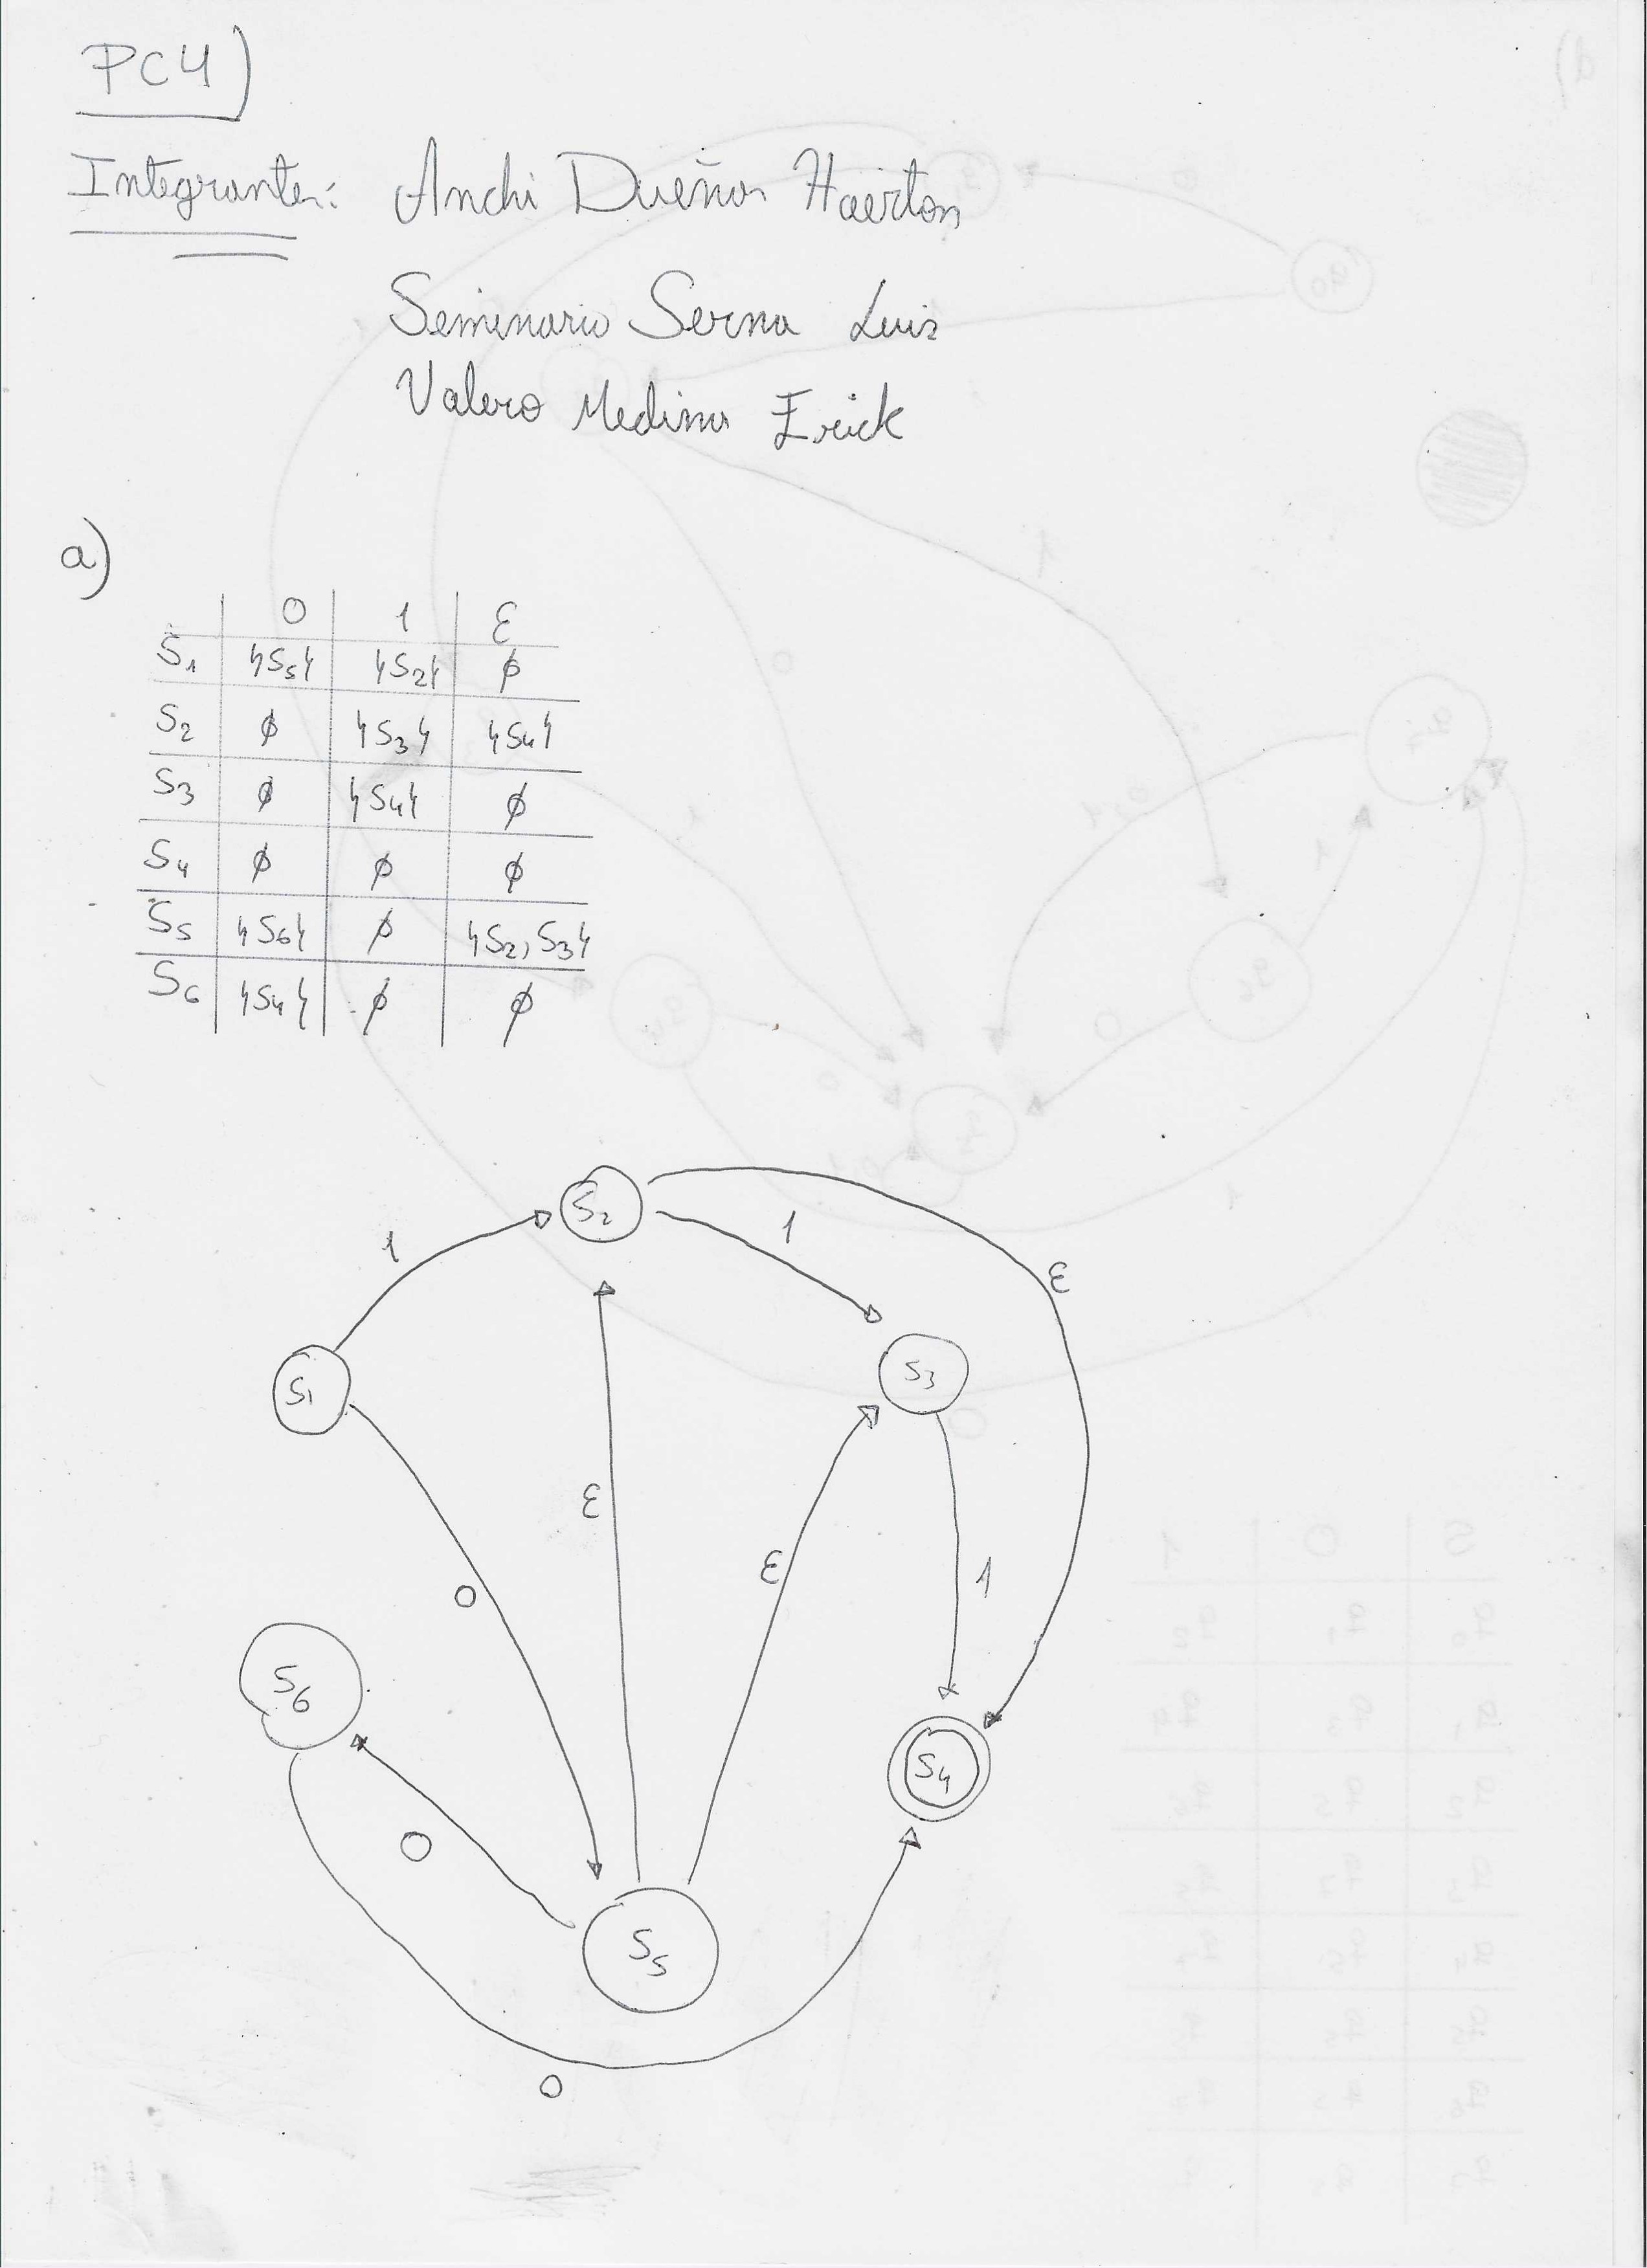 PC4)
Integrantes: Anchi Dueñas Haerton
Seminario Serna Luis
Valero Medina Erick
a)
0 1 ε
S1 {S5} {S2} ϕ
S2 ϕ {S3} {S4}
S3 ϕ {S4} ϕ
S4 ϕ ϕ ϕ
S5 {S6} ϕ {S2, S3}
S6 {S4} ϕ ϕ
S2
1
1
ε
S1
S3
ε
ε
1
0
S6
S4
0
S5
0